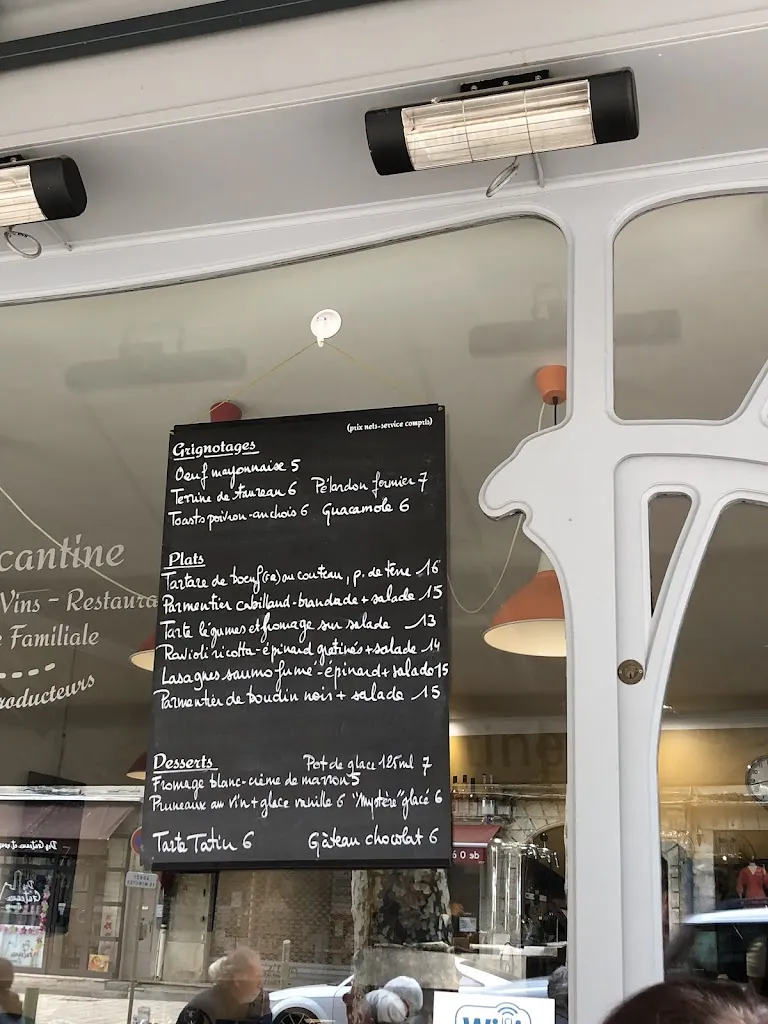 (prix nets-service compris)
Grignotages
Oeuf mayonnaise 5
Terrine de taureau 6 Pélardon fermier 7
Toasts poivron-anchois 6 Guacamole 6
Plats
Tartare de boeuf (cru) au couteau, p. de terre 16
Parmentier cabillaud-brandade + salade 15
Tarte légumes et fromage sur salade 13
Ravioli ricotta-épinard gratinés + salade 14
Lasagnes saumo fumé-épinard + salade 15
Parmentier de boudin noir + salade 15
Desserts Pot de glace 125ml 7
Fromage blanc-crème de marron 5
Pruneaux au vin + glace vanille 6 "Mystère" glacé 6
Tarte Tatin 6 Gâteau chocolat 6
cantine
Vins - Restaura
Familiale
roducteurs